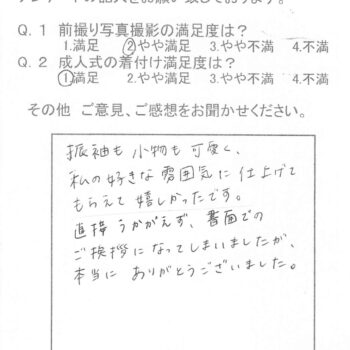 Q.1 前撮り写真撮影の満足度は？
1.満足 ②やや満足 3.やや不満 4.不満
Q.2 成人式の着付け満足度は？
①満足 2.やや満足 3.やや不満 4.不満
その他 ご意見、ご感想をお聞かせください。
振袖も 小物も 可愛く、
私の好きな 雰囲気に 仕上げて
もらえて 嬉しかったです。
直接 うかがえず、書面での
ご挨拶に なってしまいましたが、
本当に ありがとうございました。